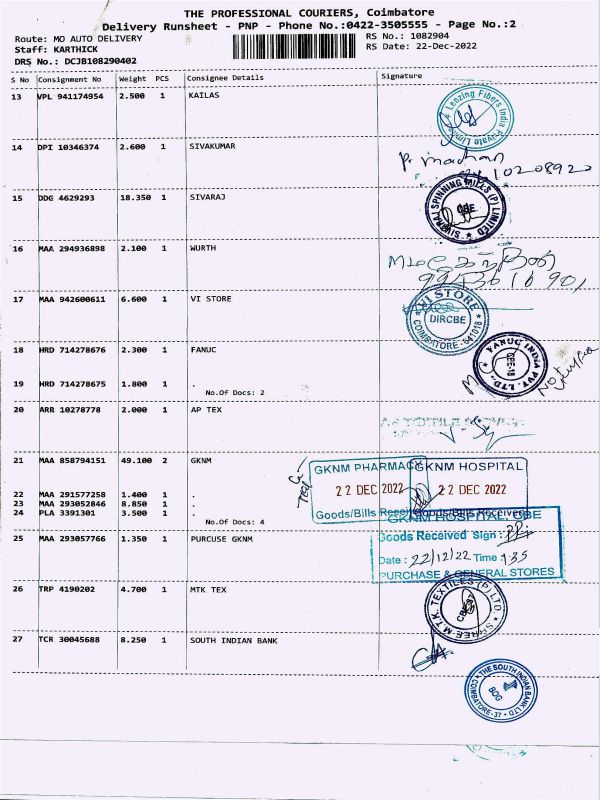 THE PROFESSIONAL COURIERS, Coimbatore
Delivery Runsheet - PNP - Phone No.:0422-3505555 - Page No.:2
Route: MO AUTO DELIVERY RS No.: 1082904
Staff: KARTHICK RS Date: 22-Dec-2022
DRS No.: DCJB108290402
S No Consignment No Weight PCS Consignee Details Signature
13 VPL 941174954 2.500 1 KAILAS
Lenzing Fibers India Private Limited
14 DPI 10346374 2.600 1 SIVAKUMAR
15 DDG 4629293 18.350 1 SIVARAJ
SIVARAJ SPINNING MILLS (P) LIMITED
16 MAA 294936898 2.100 1 WURTH
17 MAA 942600611 6.600 1 VI STORE
VI STORE
DIRCBE
COIMBATORE - 641018
18 HRD 714278676 2.300 1 FANUC
FANUC INDIA PVT. LTD.
19 HRD 714278675 1.800 1 .
No.Of Docs: 2
20 ARR 10278778 2.000 1 AP TEX
21 MAA 858794151 49.100 2 GKNM
GKNM PHARMACY GKNM HOSPITAL
22 DEC 2022 22 DEC 2022
22 MAA 291577258 1.400 1 .
23 MAA 293052846 8.850 1 .
24 PLA 3391301 3.500 1 .
No.Of Docs: 4
Goods/Bills Received Goods/Bills Received
GKNM HOSPITAL, CBE
25 MAA 293057766 1.350 1 PURCUSE GKNM
Goods Received Sign :
Date : 22/12/22 Time : 1.35
PURCHASE & GENERAL STORES
26 TRP 4190202 4.700 1 MTK TEX
SHREE M.T.K. TEXTILES (P) LTD.
27 TCR 30045688 8.250 1 SOUTH INDIAN BANK
THE SOUTH INDIAN BANK LTD
BOG
COIMBATORE-37